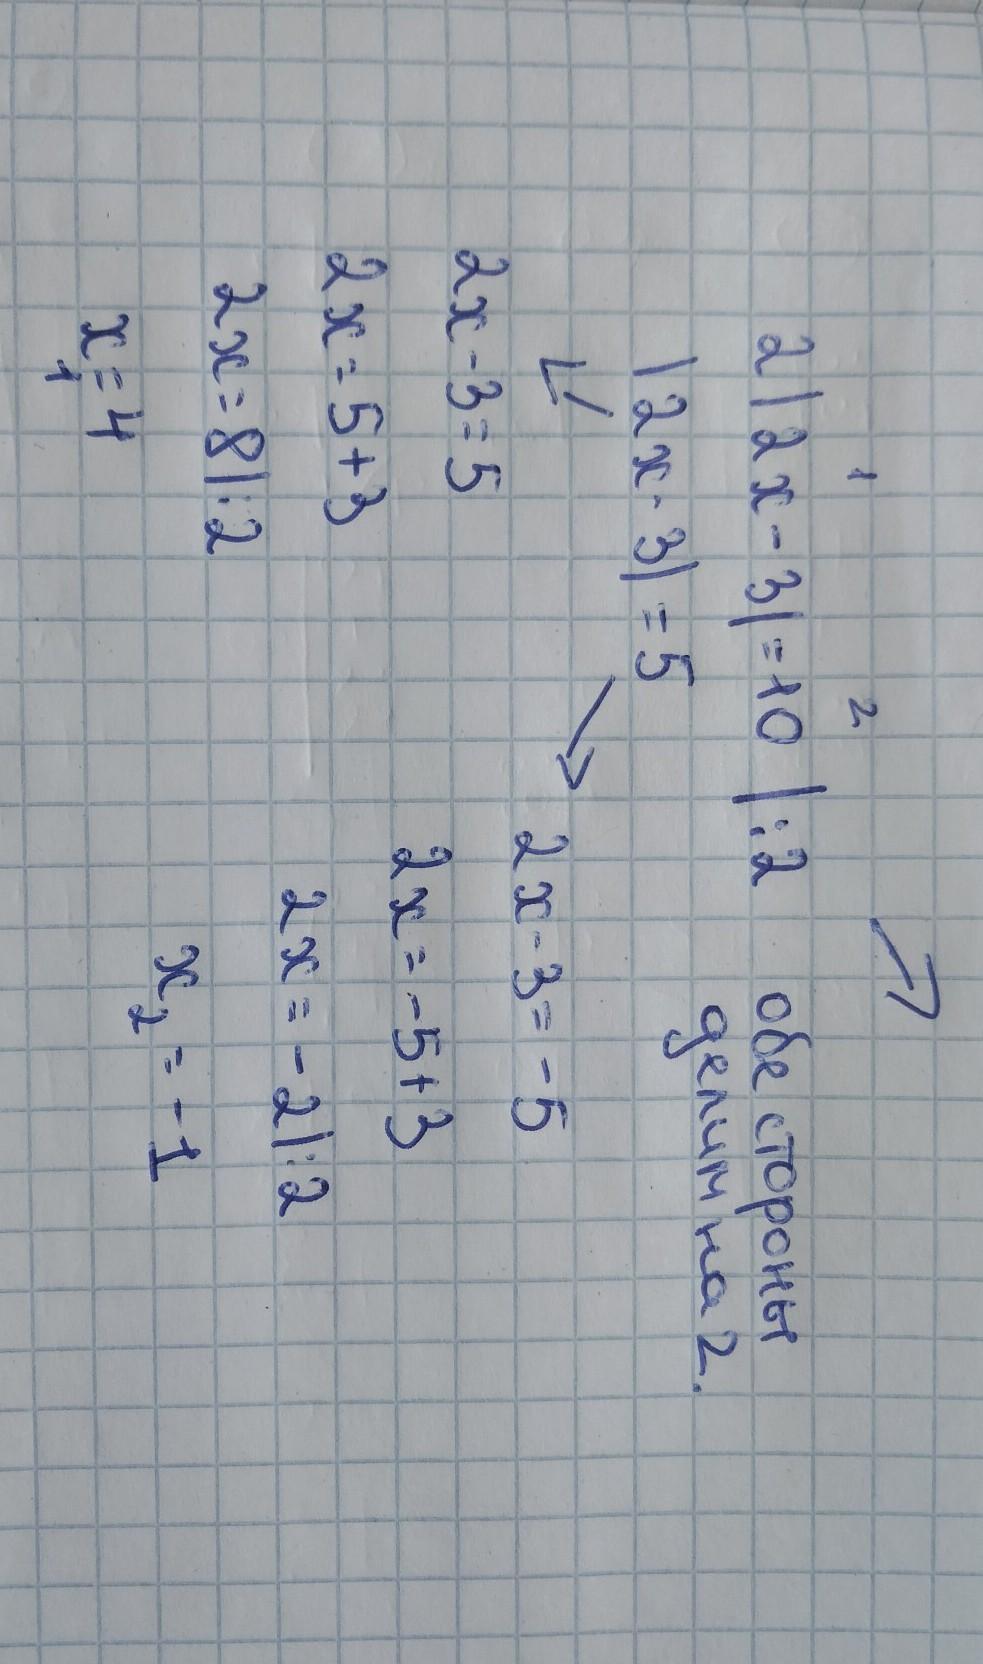 1 2
2|2x-3|=10 |:2 обе стороны
делим на 2.
|2x-3|=5
2x-3=5
2x=5+3
2x=8|:2
x₁=4
2x-3=-5
2x=-5+3
2x=-2|:2
x₂=-1